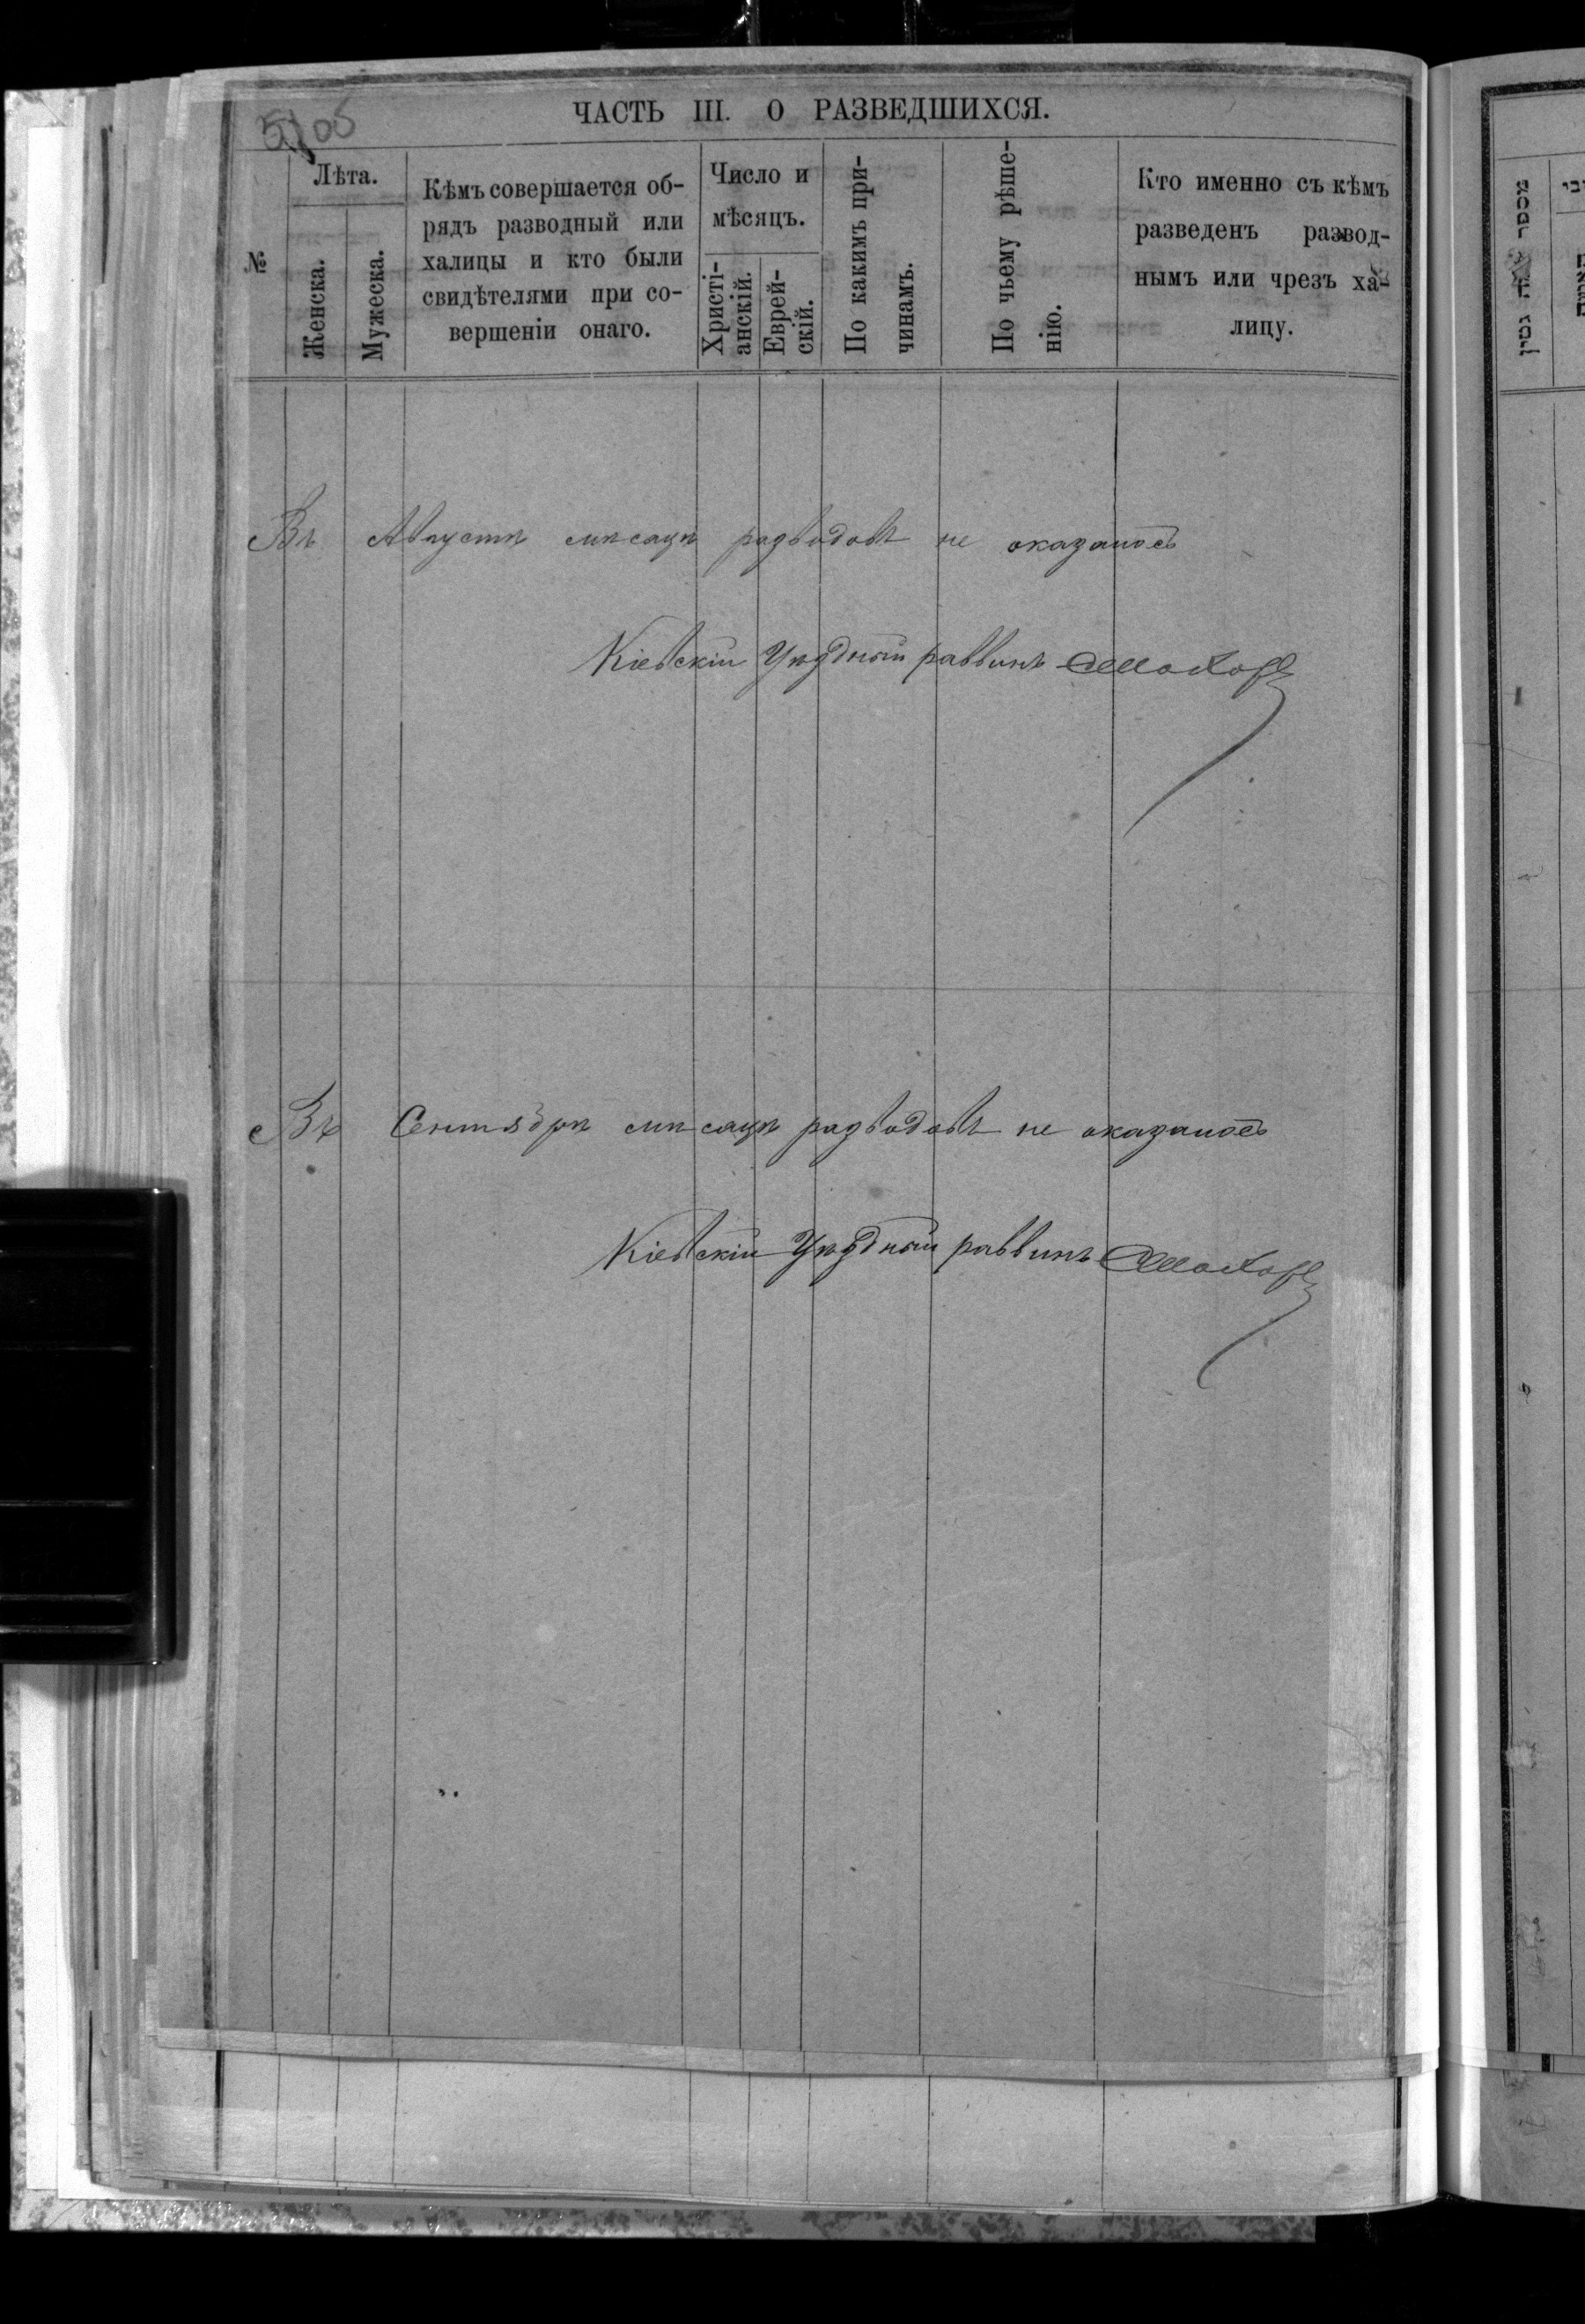 ЧАСТЬ III. О РАЗВЕДШИХСЯ.
№
Лѣта.
Женска.
Мужеска.
Кѣмъ совершается об-
рядъ разводный или
халицы и кто были
свидѣтелями при со-
вершеніи онаго.
Число и
мѣсяцъ.
Христі-
анскій.
Еврей-
скій.
По какимъ при-
чинамъ.
По чьему рѣше-
нію.
Кто именно съ кѣмъ
разведенъ развод-
нымъ или чрезъ ха-
лицу.
Въ Августѣ мѣсяцѣ разводовъ не оказалось
Кіевскій Уѣздный раввинъ
Въ Сентябрѣ мѣсяцѣ разводовъ не оказалось
Кіевскій Уѣздный раввинъ
מספר
גטין